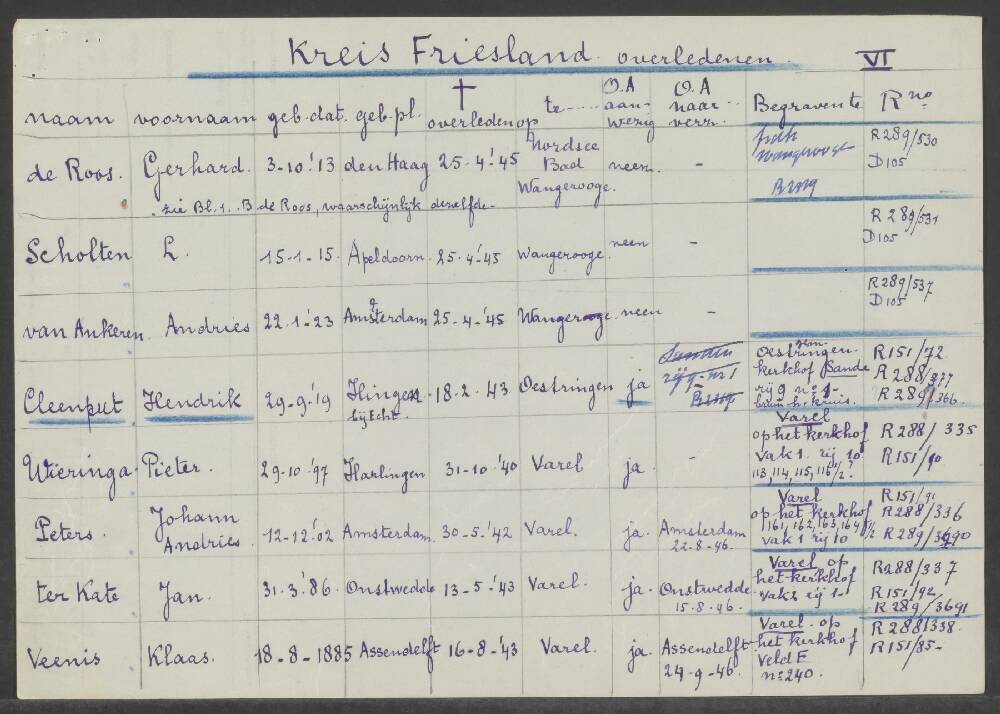 Kreis Friesland overledenen. VI
naam voornaam geb.dat. geb.pl. † overleden op te..... O.A aanwezig O.A naar verz. Begraven te R no
de Roos. Gerhard. 3-10.'13 den Haag 25-4.'45 Nordsee Bad Wangerooge. neen. - Wangerooge R289/530 D105
. zie Bl.1. B de Roos, waarschijnlijk dezelfde-
Scholten L. 15-1-15. Apeldoorn. 25.4-'45 Wangerooge. neen - R289/531 D105
van Ankeren. Andries 22.1-'23 Amsterdam 25-4-'45 Wangerooge. neen - R289/537 D105
Cleenput Hendrik 29-9.'19 Hingen bij Echt. 18-2.'43. Oestringen ja rij 9-nr 1 Oestringen. gem. kerkhof Sande rij 9 nr 1- bruin h. kruis. R151/72 R288/377 R289/366.
Wieringa Pieter. 29-10.'97 Harlingen 31-10.'40 Varel ja. - Varel op het kerkhof vak 1. rij 10 113, 114, 115, 116 1/2? R288/335 R151/90
Peters. Johann Andries. 12-12.'02 Amsterdam. 30-5.'42 Varel. ja. Amsterdam 22-8-46. Varel op het kerkhof 161, 162, 163, 164 1/2 vak 1 rij 10 R151/91 R288/336 R289/3690
ter Kate Jan. 31-3.'86. Onstwedde 13-5.'43 Varel. ja. Onstwedde. 15.8-46. Varel op het kerkhof vak 1 rij 10 R288/337 R151/92 R289/3691
Veenis Klaas. 18-8-1885 Assendelft 16-8-'43 Varel. ja. Assendelft 24-9-46. Varel. op het kerkhof Veld F nº 240. R288/338. R151/85-